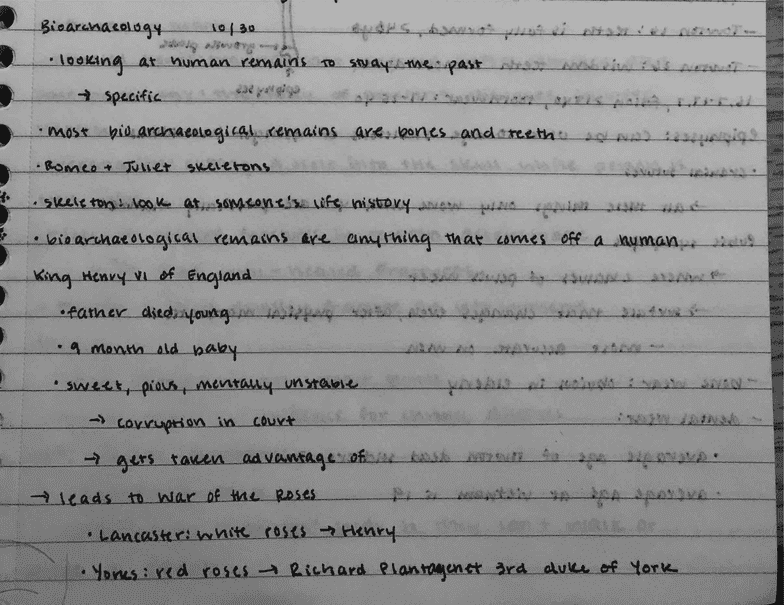 Bioarchaeology 10/30
• looking at human remains to study the past
→ specific
• most bioarchaeological remains are bones and teeth
• Romeo + Juliet skeletons
• skeleton: look at someone's life history
• bioarchaeological remains are anything that comes off a human
King Henry VI of England
• father died young
• 9 month old baby
• sweet, pious, mentally unstable
→ corruption in court
→ gets taken advantage of
→ leads to War of the Roses
• Lancaster: white roses → Henry
• Yorks: red roses → Richard Plantagenet 3rd duke of York